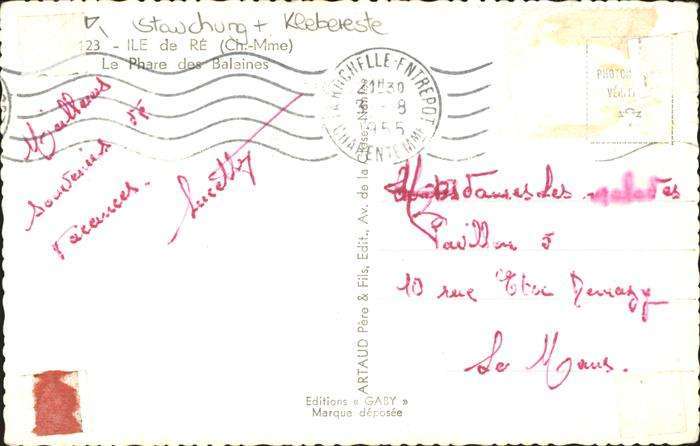 Stauchung + Klebereste
123 - ILE de RÉ (Ch.-Mme)
Le Phare des Baleines
LA ROCHELLE-ENTREPOT
21H30
8
1955
CHARENTE MME
PHOTO
VÉRIT
Meilleurs
souvenirs de
vacances.
Lucette
Mesdames Les malades
Pavillon 5
10 rue
Le Mans.
ARTAUD Père & Fils, Edit., Av. de la Close, Nantes
Editions « GABY »
Marque déposée